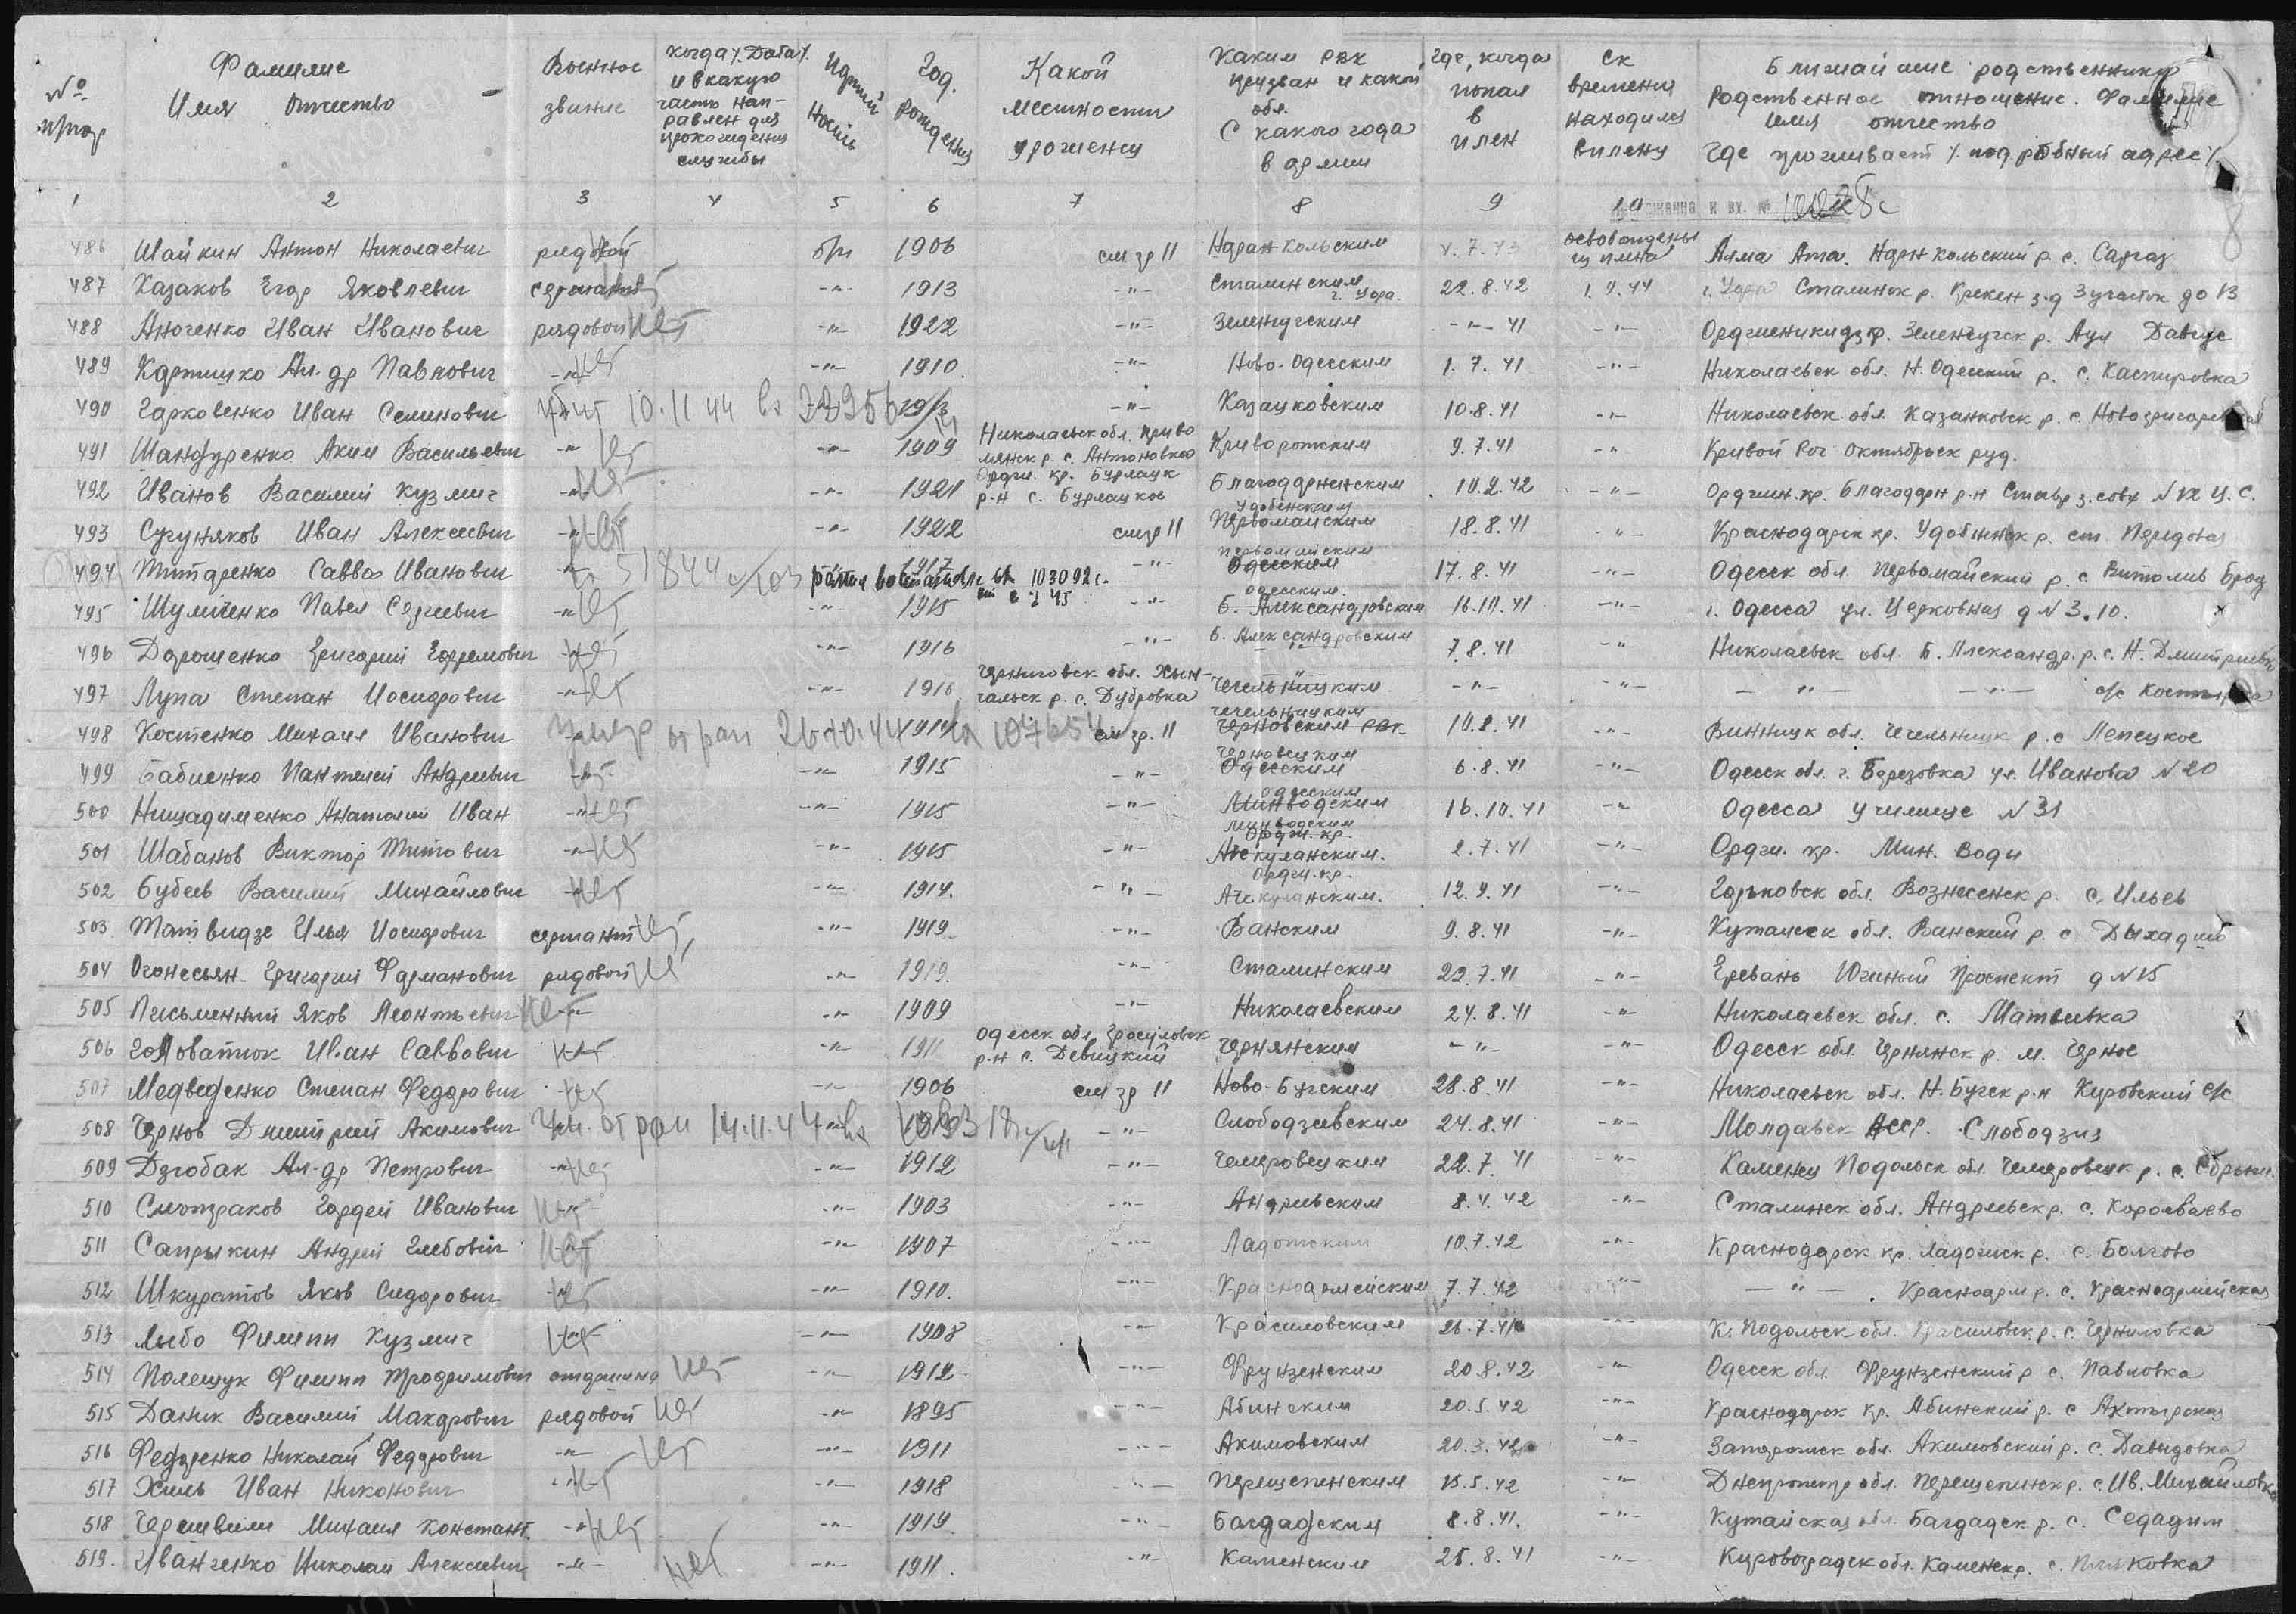 № п/пор
Фамилие Имя Отчество
Военное звание
когда /. Дата/. и в какую часть нап- равлен для прохождения службы
Партий ность
Год рождения
Какой местности уроженец
Каким РВК призван и какой обл. С какого года в армии
Где, когда попал в плен
Ск времени находился в плену
Ближайшие родственники Родственное отношение. Фамилие имя отчество Где проживает /. подробный адрес/.
1 2 3 4 5 6 7 8 9 10
к вх. №
486 Шайкин Антон Николаевич рядовой б/п 1906 см гр 11 Наранкольским 4.7.43 освобождены из плена Алма Ата. Нарнкольский р. с. Саржаз
487 Казаков Егор Яковлевич сержант -"- 1913 -"- Сталинским г. Уфа. 22.8.42 1.4.44 г. Уфа Сталинск р. Крекен з-д 3 участок до 13
488 Анюченко Иван Иванович рядовой нет -"- 1922 -"- Зеленчугским -"- 41 -"- Орджоникидз кр. Зеленчугск р. Аул Давгус
489 Картишко Ал-др Павлович -"- нет -"- 1910 -"- Ново-Одесским 1.7.41 -"- Николаевск обл. Н.Одесский р. с. Каспировка
490 Гарковенко Иван Семинович убит 10.11.44 вх 1913 -"- Казанковским 10.8.41 -"- Николаевск обл. Казанковск р. с. Новогригорьевка
491 Шандуренко Аким Васильевич -"- нет -"- 1909 Николаевск обл. Приво лянск р. с. Антоновка Криворожским 9.7.41 -"- Кривой Рог Октябрьск руд.
492 Иванов Василий Кузмич -"- нет -"- 1921 Орджи. кр. Бурлацк р-н с. Бурлацкое Благодарненским 10.2.42 -"- Орджин. кр. Благодарн р-н Ставр з. совх №12 ц.с.
493 Сугуняков Иван Алексеевич -"- нет -"- 1922 см гр 11 Удобенским Первомайским 18.8.41 -"- Краснодарск кр. Удобненск р. ст Передовая
494 Титаренко Савва Иванович -"- 51844 -"- 1917 вх 103092с. -"- Первомайским Одесским 17.8.41 -"- Одесск обл. Первомайский р. с. Витолив Брод
495 Шуличенко Павел Сергеевич -"- нет -"- 1915 -"- одесским. Б. Александровским 16.10.41 -"- г. Одесса ул. Церковная д №3.10.
496 Дорошенко Григорий Ефремович -"- нет -"- 1916 -"- Б. Александровским 7.8.41 -"- Николаевск обл. Б. Александр. р. с. Н. Дмитриевк
497 Лупа Степан Иосифович -"- нет -"- 1916 Черниговск обл. р. с. Дубровка Чечельницким -"- -"- -"- -"- с/с Костырка
498 Костенко Михаил Иванович умер от ран 26.10.44 1914 вх 107654 см гр. 11 Чечельницким Черновским РВК 10.8.41 -"- Винницк обл. Чечельницк р. с Лепецкое
499 Бабиенко Пантелей Андреевич -"- нет -"- 1915 -"- Черновецким Одесским 6.8.41 -"- Одесск обл. г. Березовка ул. Иванова №20
500 Нищадименко Анатолий Иван -"- нет -"- 1915 -"- одесским Минводским 16.10.41 -"- Одесса училище №31
501 Шабанов Виктор Титович -"- нет -"- 1915 -"- минводским Орджи. кр. Ачекулакским. 2.7.41 -"- Орджи. кр. Мин. Воды
502 Бубеев Василий Михайлович -"- нет -"- 1914. -"- Орджи. кр. Ачекулакским. 12.9.41 -"- Горьковск обл. Вознесенск р. с. Ильев
503 Матвидзе Илья Иосифович сержант нет -"- 1919 -"- Ванским 9.8.41 -"- Кутаисск обл. Ванский р. с Дыхадшо
504 Огонесьян Григорий Фарманович рядовой нет -"- 1919. -"- Сталинским 22.7.41 -"- Еревань Южный Проспект д №15
505 Письменный Яков Леонтьевич нет -"- -"- 1909 -"- Николаевским 24.8.41 -"- Николаевск обл. с. Матвеевка
506 Головатюк Иван Саввович нет -"- 1911 Одесск обл. Гросуловск р-н с. Девицкий Чернянским -"- -"- Одесск обл. Чернянск р. м. Черное
507 Медведенко Степан Федорович нет -"- 1906 см гр 11 Ново-Бугским 28.8.41 -"- Николаевск обл. Н.Бугск р-н Кировский с/с
508 Чернов Дмитрий Акимович Ум. от ран 14.11.44 вх -"- Слободзеевским 24.8.41 -"- Молдавск АССР. Слободзия
509 Дзюбак Ал-др Петрович -"- нет -"- 1912 -"- Чемеровецким 22.7.41 -"- Каменец Подольск обл. Чемеровецк р. с.
510 Гордей Иванович нет -"- 1903 -"- Андреевским 8.4.42 -"- Сталинск обл. Андреевск р. с. Караваево
511 Сапрыкин Андрей Глебович нет -"- 1907 -"- Ладожским 10.7.42 -"- Краснодарск кр. Ладожск р. с. Болгово
512 Шкуратов Яков Сидорович нет -"- 1910. -"- Красноармейским 7.7.42 -"- -"- Красноарм р. с. Красноармейская
513 Лыбо Филипп Кузмич нет -"- 1908 -"- Красиловским 26.7.41 -"- К. Подольск обл. Красиловск р. с. Черниловка
514 Полещук Филипп Трофимович старшина нет -"- 1912 -"- Фрунзенским 20.8.42 -"- Одесск обл. Фрунзенский р с. Павловка
515 Даник Василий Макарович рядовой нет -"- 1895 -"- Абинским 20.5.42 -"- Краснодарск кр. Абинский р. с Ахтырская
516 Федоренко Николай Федорович -"- нет -"- 1911 -"- Акимовским 20.3.42 -"- Запорожск обл. Акимовский р. с. Давыдовка
517 Хиль Иван Никонович -"- нет -"- 1918 -"- Перещепинским 15.5.42 -"- Днепропетр обл. Перещепинск р. с. Ив. Михайловка
518 Черишвили Михаил Констант. -"- нет -"- 1919. -"- Багдадским 8.8.41. -"- Кутайская обл. Багдадск р. с. Седадим
519. Иванченко Николай Алексеевич -"- нет -"- 1911. -"- Каменским 25.8.41 -"- Кировоградск обл. Каменск р. с.